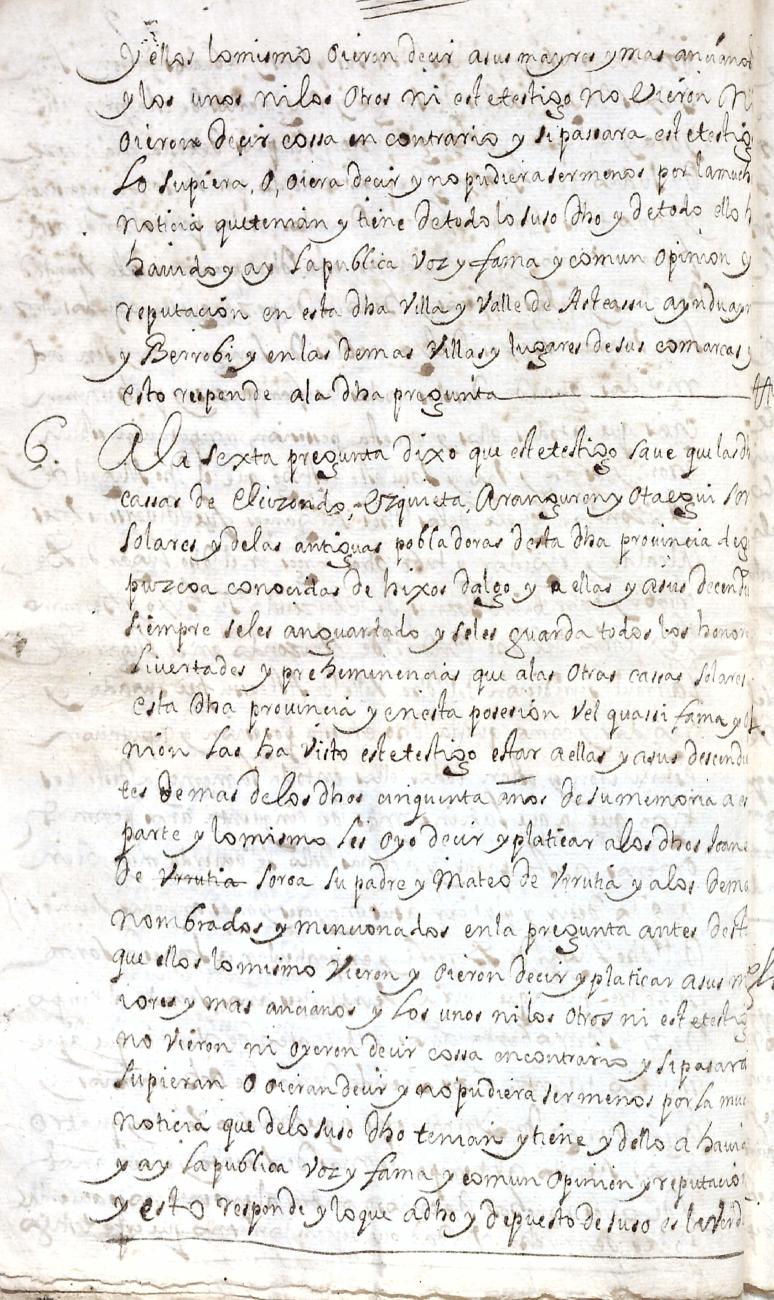 y ellos lo mismo oieron decir a sus mayres y mas anciano
y los unos ni los otros ni este testigo no Vieron Ni
oieron decir cossa en contrario y si passara este testig
Lo supiera, o, oiera decir y no pudiera ser menos por la much
noticia que tenian y tiene de todo lo suso dho y de todo ello h
havido y ay la publica voz y fama y comun opinion y
reputacion en esta dha Villa y Valle de Asteassu aynduayn
y Berrobi y en las demas Villas y lugares de sus comarcas y
esto responde a la dha pregunta
6. A la sexta pregunta dixo que este testigo save que las dh
cassas de Elizondo, Ezquieta, Aranguren y Otaegui son
solares y de las antiguas pobladoras desta dha provincia de g
puzcoa conocidas de hixos dalgo y a ellas y a sus decend
siempre se les an guardado y se les guarda todos los honor
Livertades y preheminencias que a las otras cassas solares
esta dha provincia y en esta posesion vel quassi fama y
nion las ha visto este testigo estar a ellas y a sus descend
tes de mas de los dhos cinquenta años de su memoria a es
parte y lo mismo les oyo decir y platicar a los dhos Joane
De Urrutia Soroa su padre y Mateo de Urrutia y a los dema
nombrados y mencionados en la pregunta antes dest
que ellos lo mismo vieron y oieron decir y platicar a sus m
iores y mas ancianos y Los unos ni los otros ni este testig
no vieron ni oyeron decir cossa en contrario y si pasara
supieran o oieran decir y no pudiera ser menos por la muc
noticia que de lo suso dho tenian y tiene y dello a havi
y ay la publica voz y fama y comun opinion y reputacio
y esto responde y lo que a dho y depuesto de suso es la verd